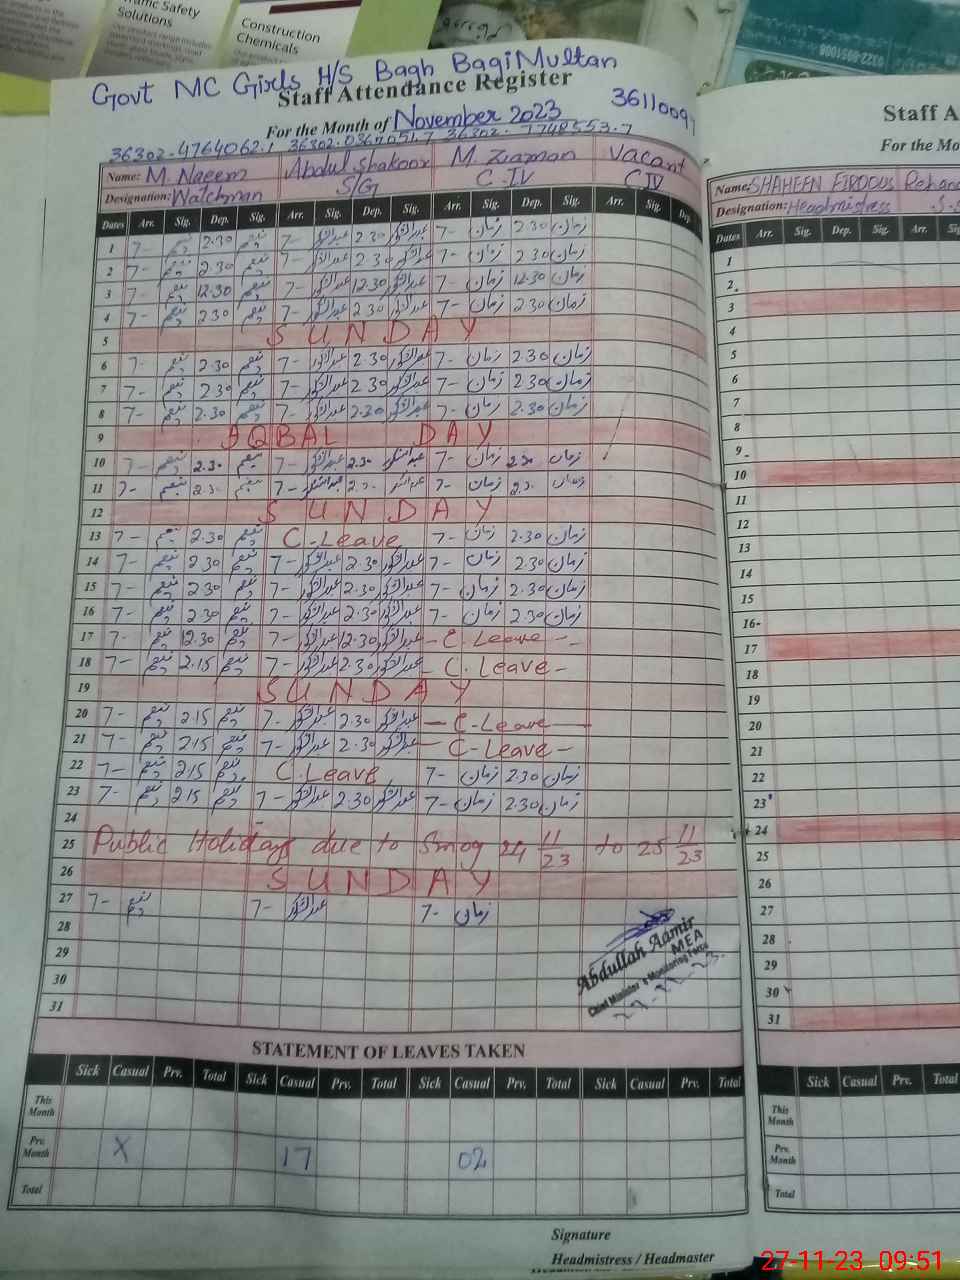 Traffic Safety
Solutions
Construction
Chemicals
Govt MC Girls H/S Bagh Bagi Multan
Staff Attendance Register
For the Month of November 2023
36302-4764062.1 36302. 7748553.7
Name: M. Naeem Abdul Shakoor M. Zaman Vacant
Designation: Watchman S/G C-IV C IV
Dates Arr. Sig. Dep. Sig. Arr. Sig. Dep. Sig. Arr. Sig. Dep. Sig. Arr. Sig. Dep.
1 7- نعیم 2.30 نعیم 7- عبدالشکور 2.30 عبدالشکور 7- زمان 2.30 زمان
2 7- نعیم 2.30 نعیم 7- عبدالشکور 2.30 عبدالشکور 7- زمان 2.30 زمان
3 7- نعیم 12.30 نعیم 7- عبدالشکور 12.30 عبدالشکور 7- زمان 12.30 زمان
4 7- نعیم 2.30 نعیم 7- عبدالشکور 2.30 عبدالشکور 7- زمان 2.30 زمان
5 SUNDAY
6 7- نعیم 2.30 نعیم 7- عبدالشکور 2.30 عبدالشکور 7- زمان 2.30 زمان
7 7- نعیم 2.30 نعیم 7- عبدالشکور 2.30 عبدالشکور 7- زمان 2.30 زمان
8 7- نعیم 2.30 نعیم 7- عبدالشکور 2.30 عبدالشکور 7- زمان 2.30 زمان
9 AQBAL DAY
10 7- نعیم 2.30 نعیم 7- عبدالشکور 2.30 عبدالشکور 7- زمان 2.30 زمان
11 7- نعیم 2.30 نعیم 7- عبدالشکور 2.30 عبدالشکور 7- زمان 2.30 زمان
12 SUNDAY
13 7- نعیم 2.30 نعیم C-Leave 7- زمان 2.30 زمان
14 7- نعیم 2.30 نعیم 7- عبدالشکور 2.30 عبدالشکور 7- زمان 2.30 زمان
15 7- نعیم 2.30 نعیم 7- عبدالشکور 2.30 عبدالشکور 7- زمان 2.30 زمان
16 7- نعیم 2.30 نعیم 7- عبدالشکور 2.30 عبدالشکور 7- زمان 2.30 زمان
17 7- نعیم 12.30 نعیم 7- عبدالشکور 12.30 عبدالشکور - C. Leave -
18 7- نعیم 2.15 نعیم 7- عبدالشکور 2.30 عبدالشکور - C. Leave -
19 SUNDAY
20 7- نعیم 2.15 نعیم 7- عبدالشکور 2.30 عبدالشکور - C-Leave -
21 7- نعیم 215 نعیم 7- عبدالشکور 2.30 عبدالشکور - C-Leave -
22 7- نعیم 215 نعیم C.Leave 7- زمان 2.30 زمان
23 7- نعیم 215 نعیم 7- عبدالشکور 2.30 عبدالشکور 7- زمان 2.30 زمان
24
25 Public Holidays due to Smog 24 11/23 to 25 11/23
26 SUNDAY
27 7- نعیم 7- عبدالشکور 7- زمان
28
29
30
31
Abdullah Aamir
MEA
Chief Minister's Monitoring Force
27-11-23.
STATEMENT OF LEAVES TAKEN
Sick Casual Prv. Total Sick Casual Prv. Total Sick Casual Prv. Total Sick Casual Prv. Total
This Month
Prv. Month X 17 02
Total
Signature
Headmistress / Headmaster
Staff A
For the Mo
Name: SHAHEEN FIRDOUS
Designation: Headmistress
Dates Arr. Sig. Dep. Sig. Arr.
1
2
3
4
5
6
7
8
9
10
11
12
13
14
15
16
17
18
19
20
21
22
23
24
25
26
27
28
29
30
31
Sick Casual Prv. Total
This Month
Prv. Month
Total
27-11-23 09:51